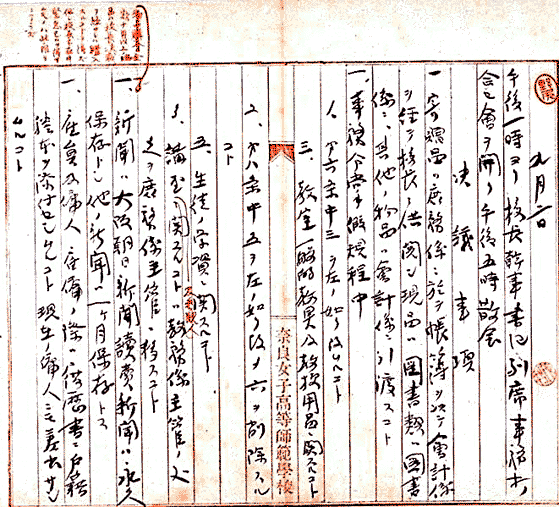 九月二日
午後一時ヨリ校長幹事書記列席事務打
合セ會ヲ開ク午後五時散會
決議事項
一 寄贈品ハ庶務係ニ於テ帳簿ヲ以テ會計係
ヲ経テ校長ノ供閲シ現品ハ圖書類ハ圖書
係ニ其他ノ物品ハ會計係ニ引渡スコト
一、事務分掌假規程中
1、第六条中三ヲ左ノ如ク改ムルコト
三、教室一般的教具及教授用品ニ関スルコト
2、第八条中五ヲ左ノ如ク改メ六ヲ削除スル
コト
五、生徒ノ学資ニ関スルコト
3、講堂ニ関スルコトハ教務係主管ノ処
之ヲ庶務係主管ニ移スコト
一、新聞ハ大阪朝日新聞讀賣新聞ハ永久
保存トシ他ノ新聞ハ一ヶ月保存トス
一、雇員及傭人雇傭ノ際ハ履歴書ニ戸籍
謄本ヲ添付セシムルコト現在ノ傭人ニモ差出サシ
ムルコト
奈良女子高等師範學校